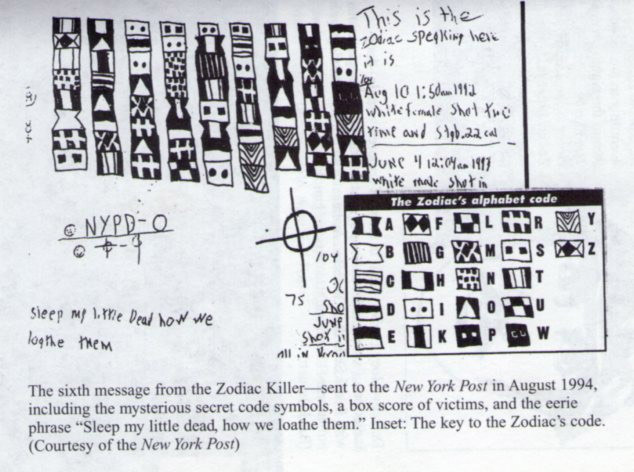 This is the
Zodiac speaking here
it is
Aug 10 1:50am 1992
white female shot two
time and stab .22 cal
JUNE 4 12:04am 1993
white male shot in
NYPD-0
The Zodiac's alphabet code
A F L R Y
B G M S Z
C H N T
D I O U
E K P W
75
JUNE
all in
sleep my little Dead how we
loathe them
The sixth message from the Zodiac Killer—sent to the New York Post in August 1994,
including the mysterious secret code symbols, a box score of victims, and the eerie
phrase “Sleep my little dead, how we loathe them.” Inset: The key to the Zodiac's code.
(Courtesy of the New York Post)